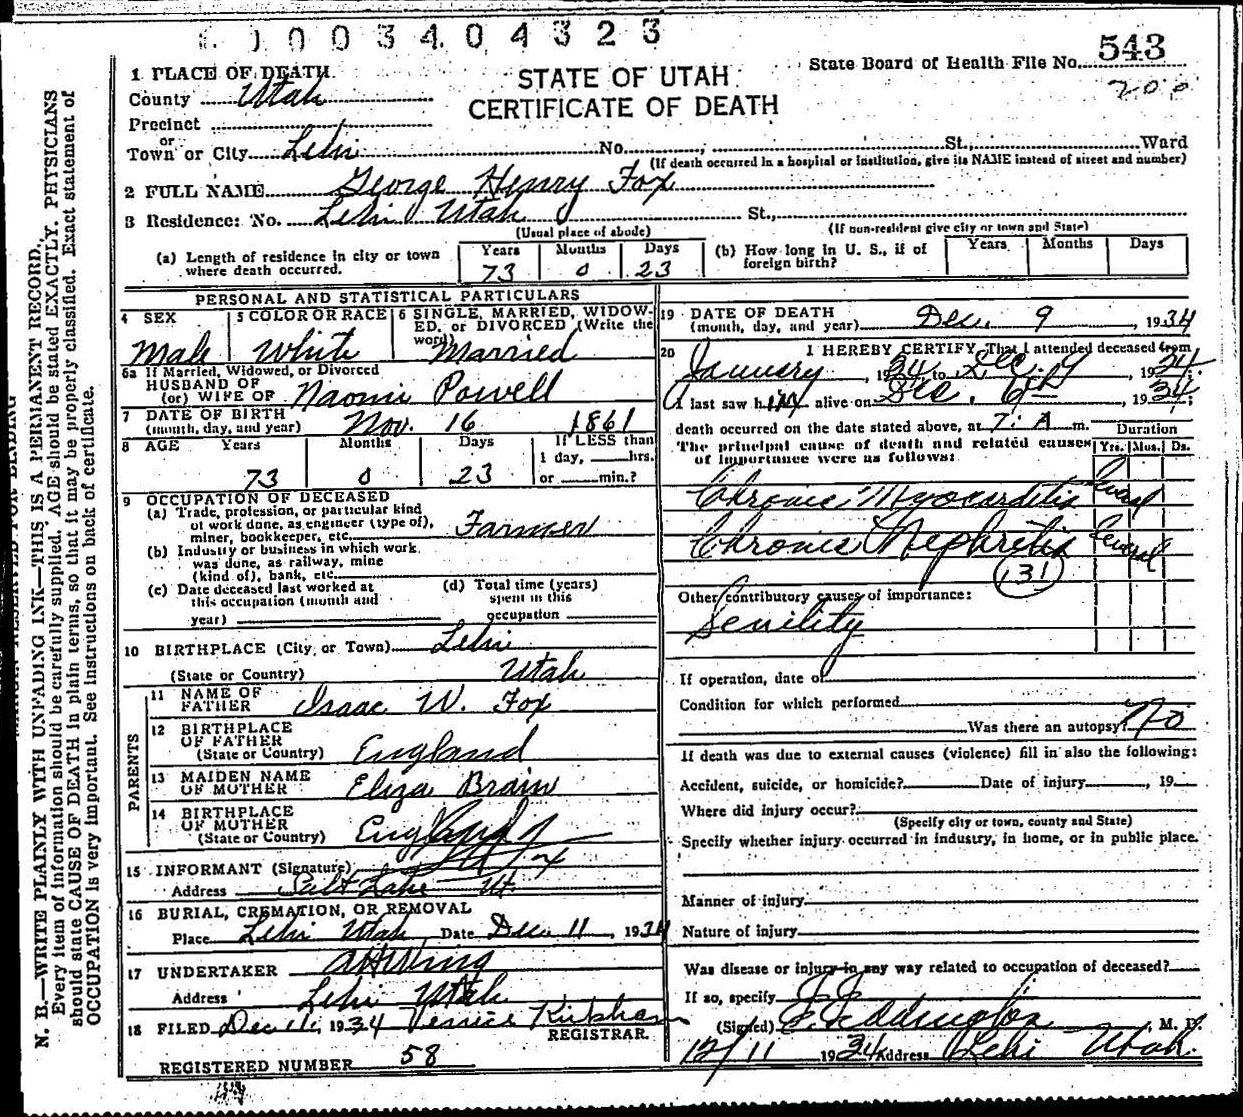 1003404323
1 PLACE OF DEATH
STATE OF UTAH
CERTIFICATE OF DEATH
State Board of Health File No. 543
200
County Utah
Precinct
or
Town or City Lehi No. St., Ward
(If death occurred in a hospital or institution, give its NAME instead of street and number)
2 FULL NAME George Henry Fox
3 Residence: No. Lehi Utah St.,
(Usual place of abode) (If non-resident give city or town and State)
(a) Length of residence in city or town where death occurred. Years 73 Months 0 Days 23
(b) How long in U. S., if of foreign birth? Years Months Days
PERSONAL AND STATISTICAL PARTICULARS
4 SEX Male
5 COLOR OR RACE White
6 SINGLE, MARRIED, WIDOWED, or DIVORCED (Write the word) Married
6a If Married, Widowed, or Divorced
HUSBAND OF
(or) WIFE OF Naomi Powell
7 DATE OF BIRTH
(month, day, and year) Nov. 16 1861
8 AGE Years 73 Months 0 Days 23 If LESS than 1 day, hrs. or min.?
9 OCCUPATION OF DECEASED
(a) Trade, profession, or particular kind
of work done, as engineer (type of),
miner, bookkeeper, etc. Farmer
(b) Industry or business in which work
was done, as railway, mine
(kind of), bank, etc.
(c) Date deceased last worked at
this occupation (month and
year)
(d) Total time (years)
spent in this
occupation
10 BIRTHPLACE (City or Town) Lehi
(State or Country) Utah
PARENTS
11 NAME OF
FATHER Isaac W. Fox
12 BIRTHPLACE
OF FATHER
(State or Country) England
13 MAIDEN NAME
OF MOTHER Eliza Brain
14 BIRTHPLACE
OF MOTHER
(State or Country) England
15 INFORMANT (Signature) Fox
Address Salt Lake Ut
16 BURIAL, CREMATION, OR REMOVAL
Place Lehi Utah Date Dec. 11, 1934
17 UNDERTAKER A H Wing
Address Lehi Utah
18 FILED Dec 11, 1934 Kirkham
REGISTRAR.
REGISTERED NUMBER 58
19 DATE OF DEATH
(month, day, and year) Dec. 9, 1934
20 I HEREBY CERTIFY, That I attended deceased from
January, 1934, to Dec. 9, 1934
I last saw him alive on Dec. 6th, 1934;
death occurred on the date stated above, at 7: A m.
The principal cause of death and related causes
of importance were as follows:
Duration
Yrs. Mos. Ds.
Chronic Myocarditis Several
Chronic Nephritis Several
131
Other contributory causes of importance:
Senility
If operation, date of
Condition for which performed
Was there an autopsy? No
If death was due to external causes (violence) fill in also the following:
Accident, suicide, or homicide? Date of injury, 19
Where did injury occur?
(Specify city or town, county and State)
Specify whether injury occurred in industry, in home, or in public place.
Manner of injury
Nature of injury
Was disease or injury in any way related to occupation of deceased?
If so, specify
(Signed) Eddington, M. D.
12/11 1934 Address Lehi Utah.
N. B.—WRITE PLAINLY WITH UNFADING INK—THIS IS A PERMANENT RECORD.
Every item of information should be carefully supplied. AGE should be stated EXACTLY. PHYSICIANS
should state CAUSE OF DEATH in plain terms, so that it may be properly classified. Exact statement of
OCCUPATION is very important. See instructions on back of certificate.